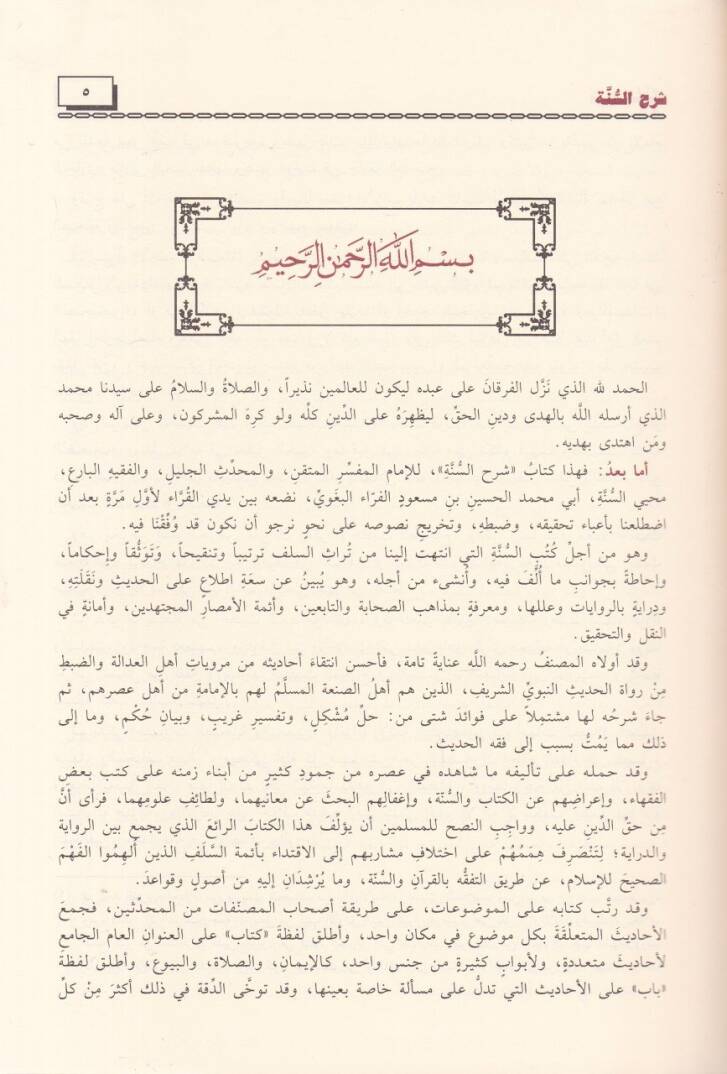 شرح السُّنَّة
٥
بسم الله الرحمن الرحيم
الحمد لله الذي نَزَّل الفرقانَ على عبده ليكون للعالمين نذيراً، والصلاةُ والسلامُ على سيدنا محمد
الذي أرسله اللَّه بالهدى ودينِ الحقْ، ليظهِرَهُ على الدِّينِ كلِّه ولو كرِهَ المشركون، وعلى آله وصحبه
ومَن اهتدى بهديه.
أما بعدُ: فهذا كتابُ «شرح السُّنَّةِ»، للإمام المفسِّرِ المتقنِ، والمحدِّثِ الجليلِ، والفقيهِ البارعِ،
محيي السُّنَّةِ، أبي محمد الحسينِ بنِ مسعودٍ الفرّاء البغَويِّ، نضعه بين يدي القُرَّاء لأوَّلِ مَرَّةٍ بعد أن
اضطلعنا بأعباء تحقيقه، وضبطِهِ، وتخريجِ نصوصه على نحوٍ نرجو أن نكون قد وُفِّقْنَا فيه.
وهو من أجلِّ كُتُبِ السُّنَّةِ التي انتهت إلينا من تُراثِ السلف ترتيباً وتنقيحاً، وَتَوَثُّقاً وإحكاماً،
وإحاطةً بجوانبِ ما أُلِّفَ فيه، وأُنشىء من أجله، وهو يُبينُ عن سعَةِ اطلاعٍ على الحديثِ ونَقَلَتِهِ،
ودِرايةٍ بالروايات وعللها، ومعرفةٍ بمذاهب الصحابة والتابعين، وأئمة الأمصار المجتهدين، وأمانةٍ في
النقل والتحقيق.
وقد أولاه المصنفُ رحمه اللَّه عنايةً تامة، فأحسن انتقاءَ أحاديثه من مروياتِ أهلِ العدالة والضبطِ
مِنْ رواة الحديثِ النبويِّ الشريفِ، الذين هم أهلُ الصنعة المسلَّمُ لهم بالإمامةِ من أهل عصرهم، ثم
جاءَ شرحُه لها مشتمِلاً على فوائدَ شتى من: حلِّ مُشْكِلٍ، وتفسيرِ غريبٍ، وبيانِ حُكْمٍ، وما إلى
ذلك مما يَمُتُّ بسبب إلى فقه الحديث.
وقد حمله على تأليفه ما شاهده في عصره من جمودِ كثيرٍ من أبناء زمنه على كتب بعضِ
الفقهاء، وإعراضِهم عن الكتاب والسُّنَّة، وإغفالِهم البحثَ عن معانيهما، ولطائفِ علومِهما، فرأى أنَّ
مِن حقِّ الدِّينِ عليه، وواجِبِ النصح للمسلمين أن يؤلِّفَ هذا الكتابَ الرائعَ الذي يجمع بين الرواية
والدراية؛ لِتَنْصَرِفَ هِمَمُهُمْ على اختلافِ مشاربهم إلى الاقتداء بأئمة السَّلَفِ الذين أُلهِمُوا الفَهْمَ
الصحيحَ للإسلام، عن طريق التفقُّه بالقرآنِ والسُّنّة، وما يُرْشِدَانِ إليه من أصولٍ وقواعدَ.
وقد رتَّب كتابه على الموضوعات، على طريقة أصحاب المصنّفات من المحدِّثين، فجمعَ
الأحاديثَ المتعلِّقةَ بكل موضوع في مكان واحد، وأطلق لفظةَ «كتاب» على العنوانِ العام الجامعِ
لأحاديثَ متعددةٍ، ولأبوابٍ كثيرةٍ من جنس واحد، كالإيمانِ، والصلاة، والبيوع، وأطلق لفظةَ
«باب» على الأحاديثِ التي تدلُّ على مسألة خاصة بعينها، وقد توخَّى الدِّقة في ذلك أكثرَ مِنْ كلِّ